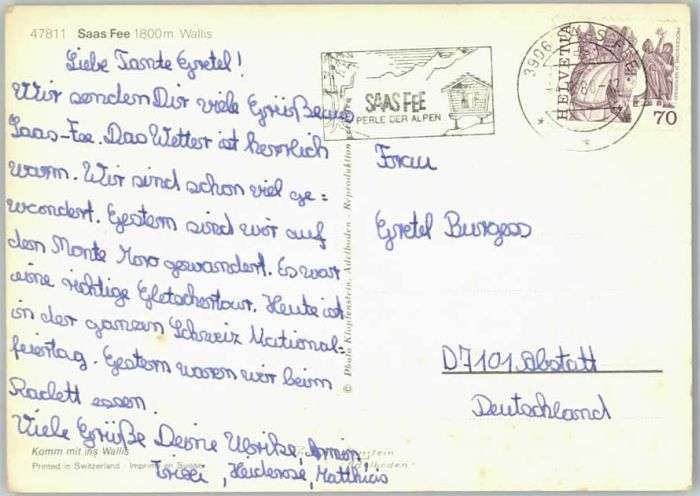 47811 Saas Fee 1800m Wallis
Liebe Tante Gretel!
Wir senden Dir viele Grüße aus
Saas-Fee. Das Wetter ist herrlich
warm. Wir sind schon viel ge=
wandert. Gestern sind wir auf
den Monte Moro gewandert. Es war
eine richtige Gletschertour. Heute ist
in der ganzen Schweiz National-
feiertag. Gestern waren wir beim
Raclett essen.
Viele Grüße Deine Ulrike, Armin
Heiderose, Matthias
Komm mit ins Wallis
Printed in Switzerland - Imprimé en Suisse
© Photo Klopfenstein, Adelboden - Reproduktion
SAAS FEE
PERLE DER ALPEN
3906 SAAS-FEE
80
HELVETIA
70
Frau
Gretel Burgess
D7101 Abstatt
Deutschland